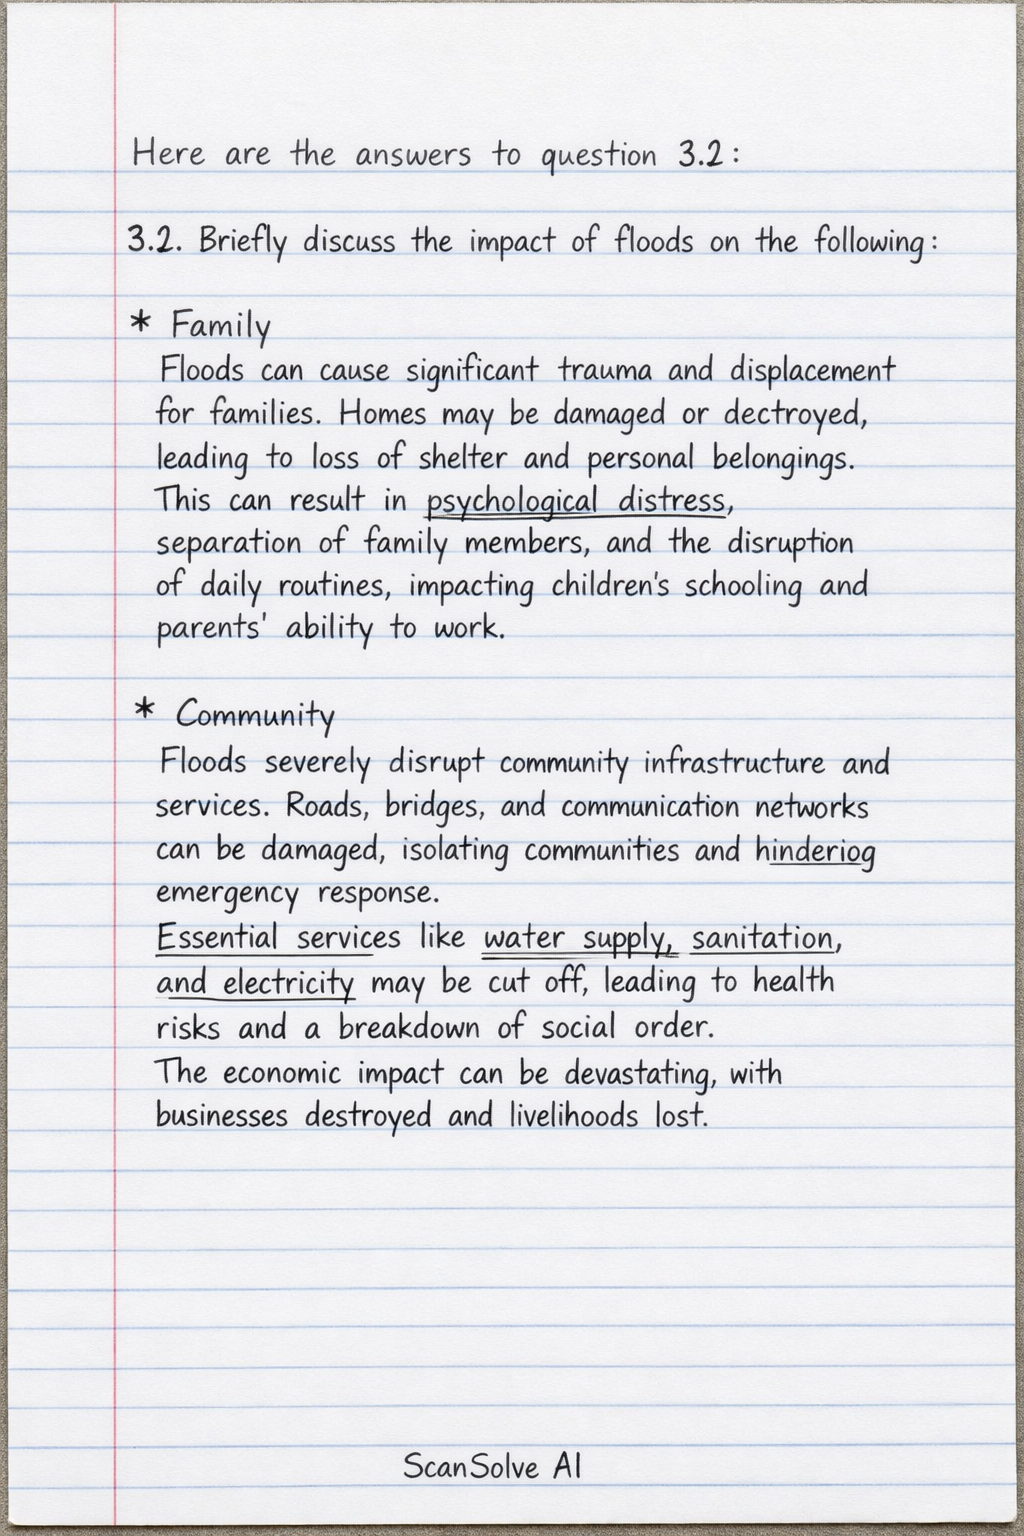 Here are the answers to question 3.2:
3.2. Briefly discuss the impact of floods on the following:
* Family
Floods can cause significant trauma and displacement
for families. Homes may be damaged or dectroyed,
leading to loss of shelter and personal belongings.
This can result in psychological distress,
separation of family members, and the disruption
of daily routines, impacting children's schooling and
parents' ability to work.
* Community
Floods severely disrupt community infrastructure and
services. Roads, bridges, and communication networks
can be damaged, isolating communities and hinderiog
emergency response.
Essential services like water supply, sanitation,
and electricity may be cut off, leading to health
risks and a breakdown of social order.
The economic impact can be devastating, with
businesses destroyed and livelihoods lost.
ScanSolve AI